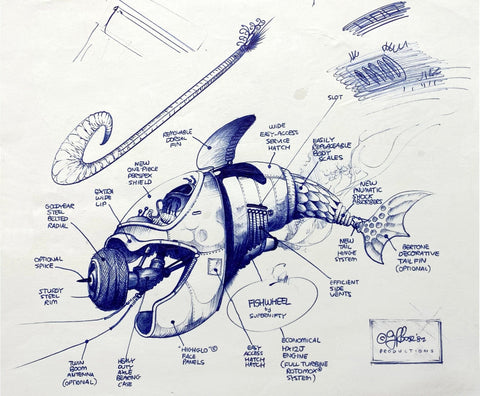 SLOT
REMOVABLE
DORSAL
FIN
WIDE
EASY-ACCESS
SERVICE
HATCH
EASILY
REPLACEABLE
BODY
SCALES
NEW
ONE-PIECE
PERSPEX
SHIELD
NEW
PNUMATIC
SHOCK
ABSORBERS
EXTRA
WIDE
LIP
GOODYEAR
STEEL
BELTED
RADIAL
OPTIONAL
SPIKE
STURDY
STEEL
RIM
NEW
TAIL
HINGE
SYSTEM
BERTONE
DECORATIVE
TAIL FIN
(OPTIONAL)
EFFICIENT
SIDE
VENTS
FISHWHEEL
BY
SUPERNIFTY
TWIN
BOOM
ANTENNA
(OPTIONAL)
HEAVY
DUTY
AXLE
BEARING
CASE
"HIGHGLO"©
FACE
PANELS
EASY
ACCESS
HATCH
HATCH
ECONOMICAL
HX12J
ENGINE
(FULL TURBINE
ROTOMOX®
SYSTEM)
PRODUCTIONS